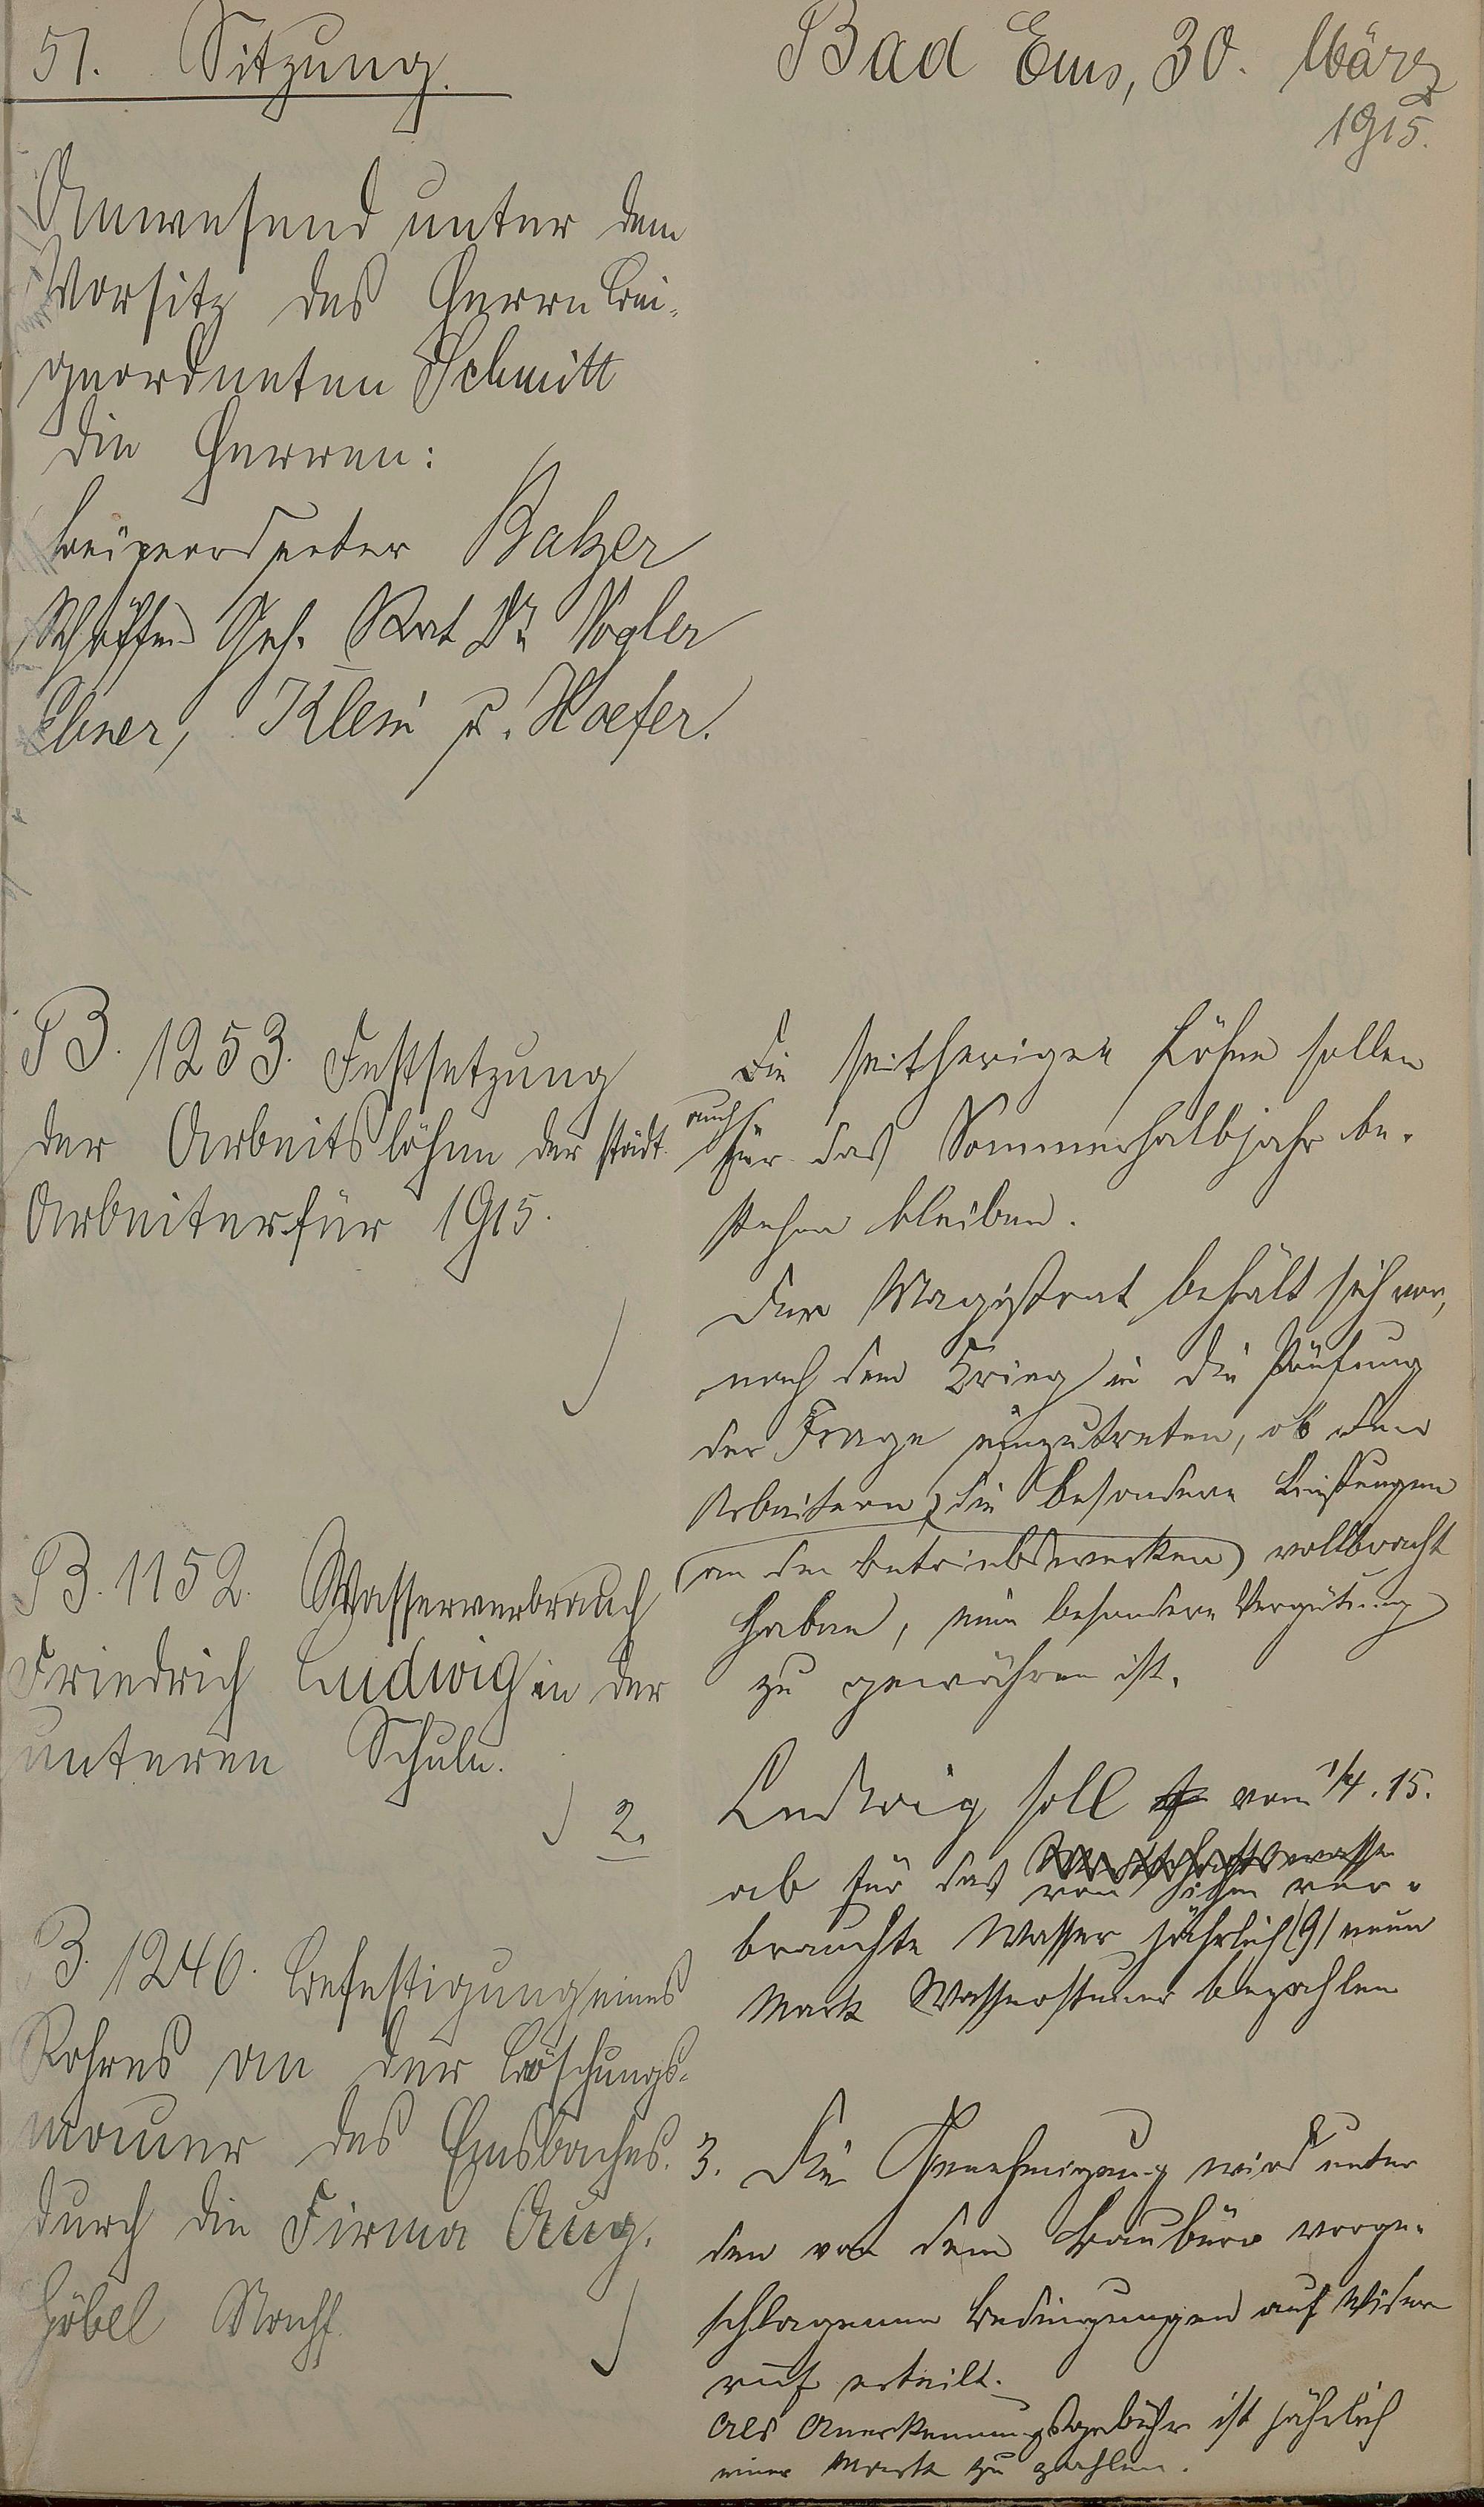 51. Sitzung.
Bad Ems, 30. März
1915.
Anwesend unter dem
Vorsitz des Herrn Bei-
geordneten Schmitt
die Herren:
Beigeordneter Balzer
Schöffen Geh. Rat Dr. Vogler
Ebner, Klein u. Hoefer.
B. 1253. Festsetzung
der Arbeitslöhne der städt.
Arbeiter für 1915.
Die seitherigen Löhne sollen
auch
für das Sommerhalbjahr be-
stehen bleiben.
Der Magistrat behält sich vor,
nach dem Krieg in die Prüfung
der Frage einzutreten, ob den
Arbeitern, die besondere Leistungen
(an den Betriebswerken) vollbracht
haben, eine besondere Vergütung
zu gewähren ist.
B. 1152. Wasserverbrauch
Friedrich Ludwig in der
unteren Schule.
2.
Ludwig soll vom 1/4. 15.
ab für das
von ihm ver-
brauchte Wasser jährlich (9) neun
Mark Wassersteuer bezahlen
B. 1246. Befestigung eines
Rohres an der Böschungs-
mauer des Emsbaches
durch die Firma Aug.
Göbel Nachf.
3. Die Genehmigung wird unter
den von dem Baubüro vorge-
schlagenen Bedingungen auf Wider
ruf erteilt.
Als Anerkennungsgebühr ist jährlich
eine Mark zu zahlen.